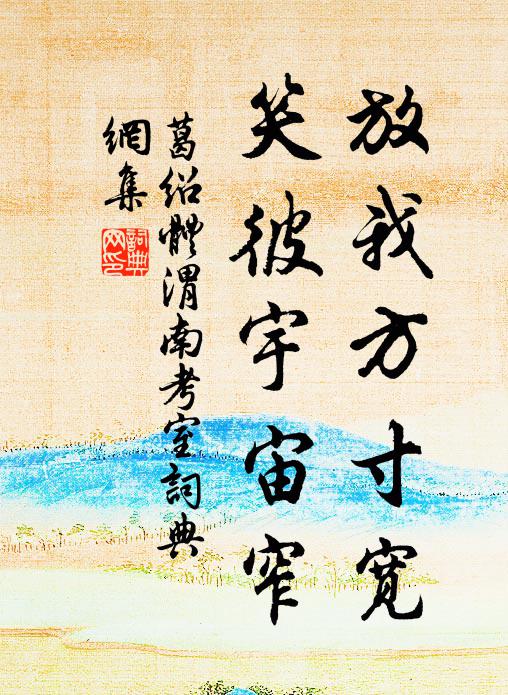 放我方寸寬
笑彼宇宙窄
葛紹體渭南考室詞典
網集
詞典
网印